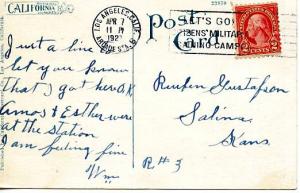 CALIFORNIA
22959
Post Card
LOS ANGELES, CALIF.
APR 7
11 PM
192
ARCADE STA.
LET'S GO!
IZENS' MILITARY
AINING CAMPS
2 CENTS 2
Just a line to
let you know
that I got here O.K.
Amos & Esther were
at the station
I am feeling fine
Wm
Reuben Gustafson
Salina,
Kans
R#3